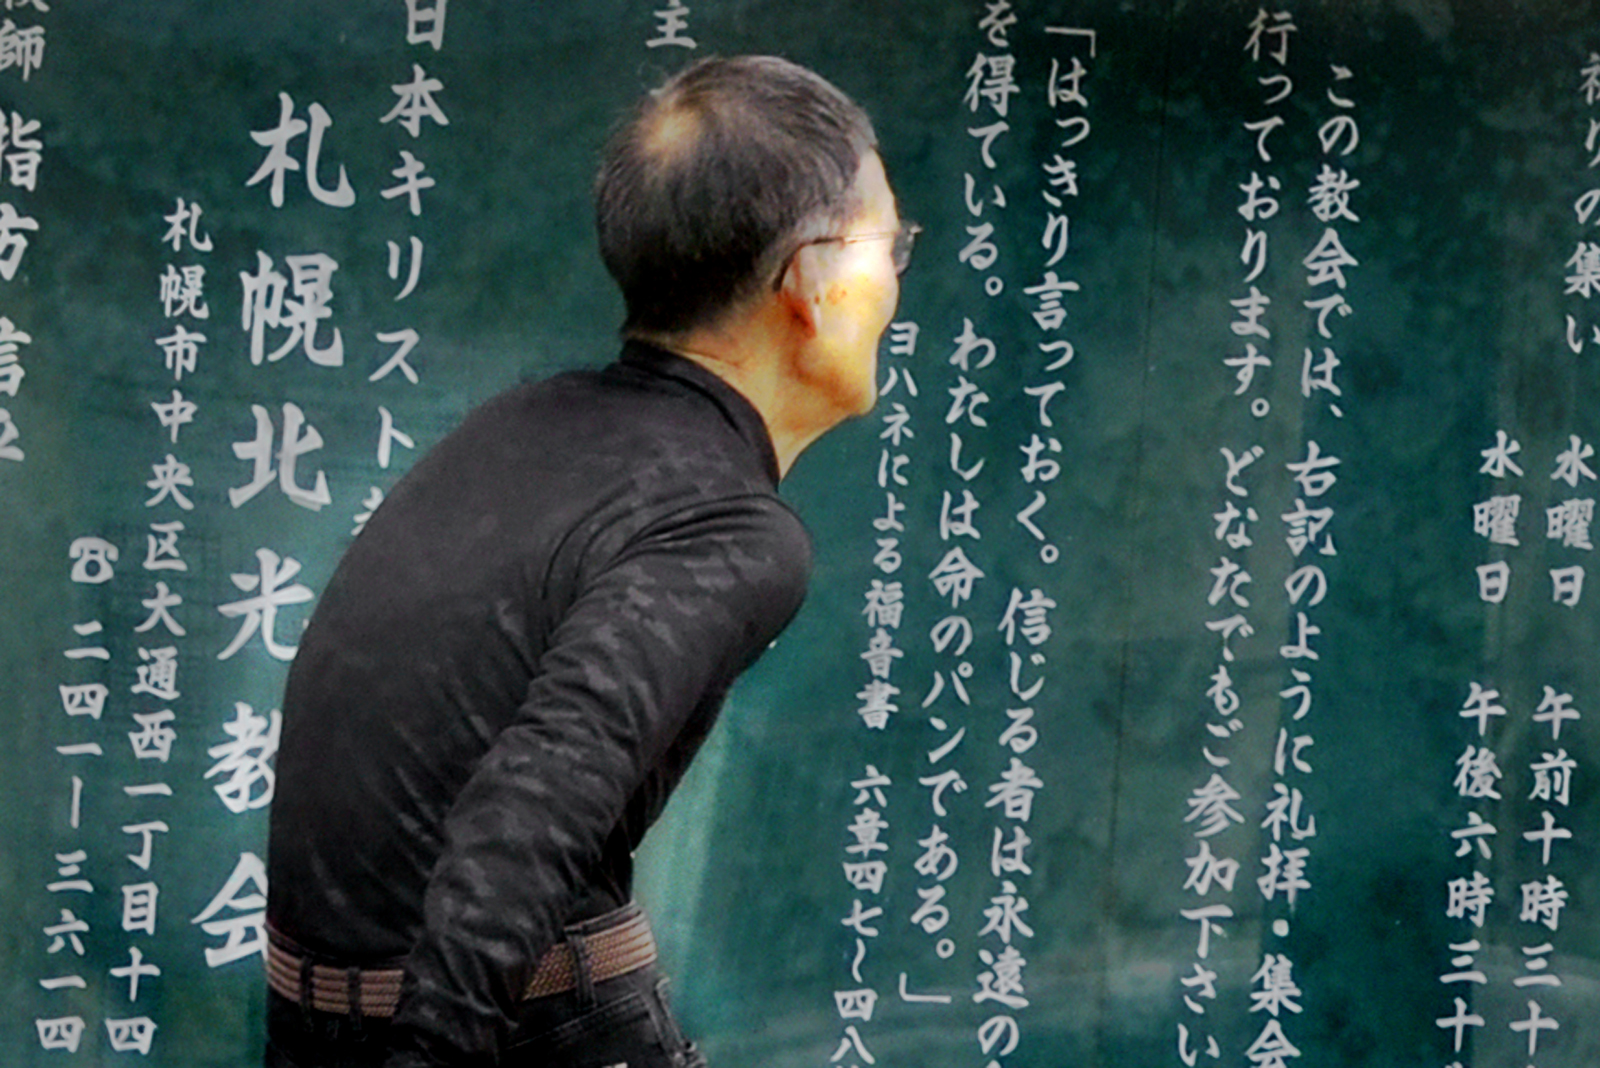 祈りの集い
水曜日 午前十時三十
水曜日 午後六時三十
この教会では、右記のように礼拝・集会
行っております。どなたでもご参加下さい
「はっきり言っておく。信じる者は永遠の
を得ている。わたしは命のパンである。」
ヨハネによる福音書 六章四七～四八
主
日本キリスト
札幌北光教会
札幌市中央区大通西一丁目十四
☎二四一ー三六一四
師 指方信